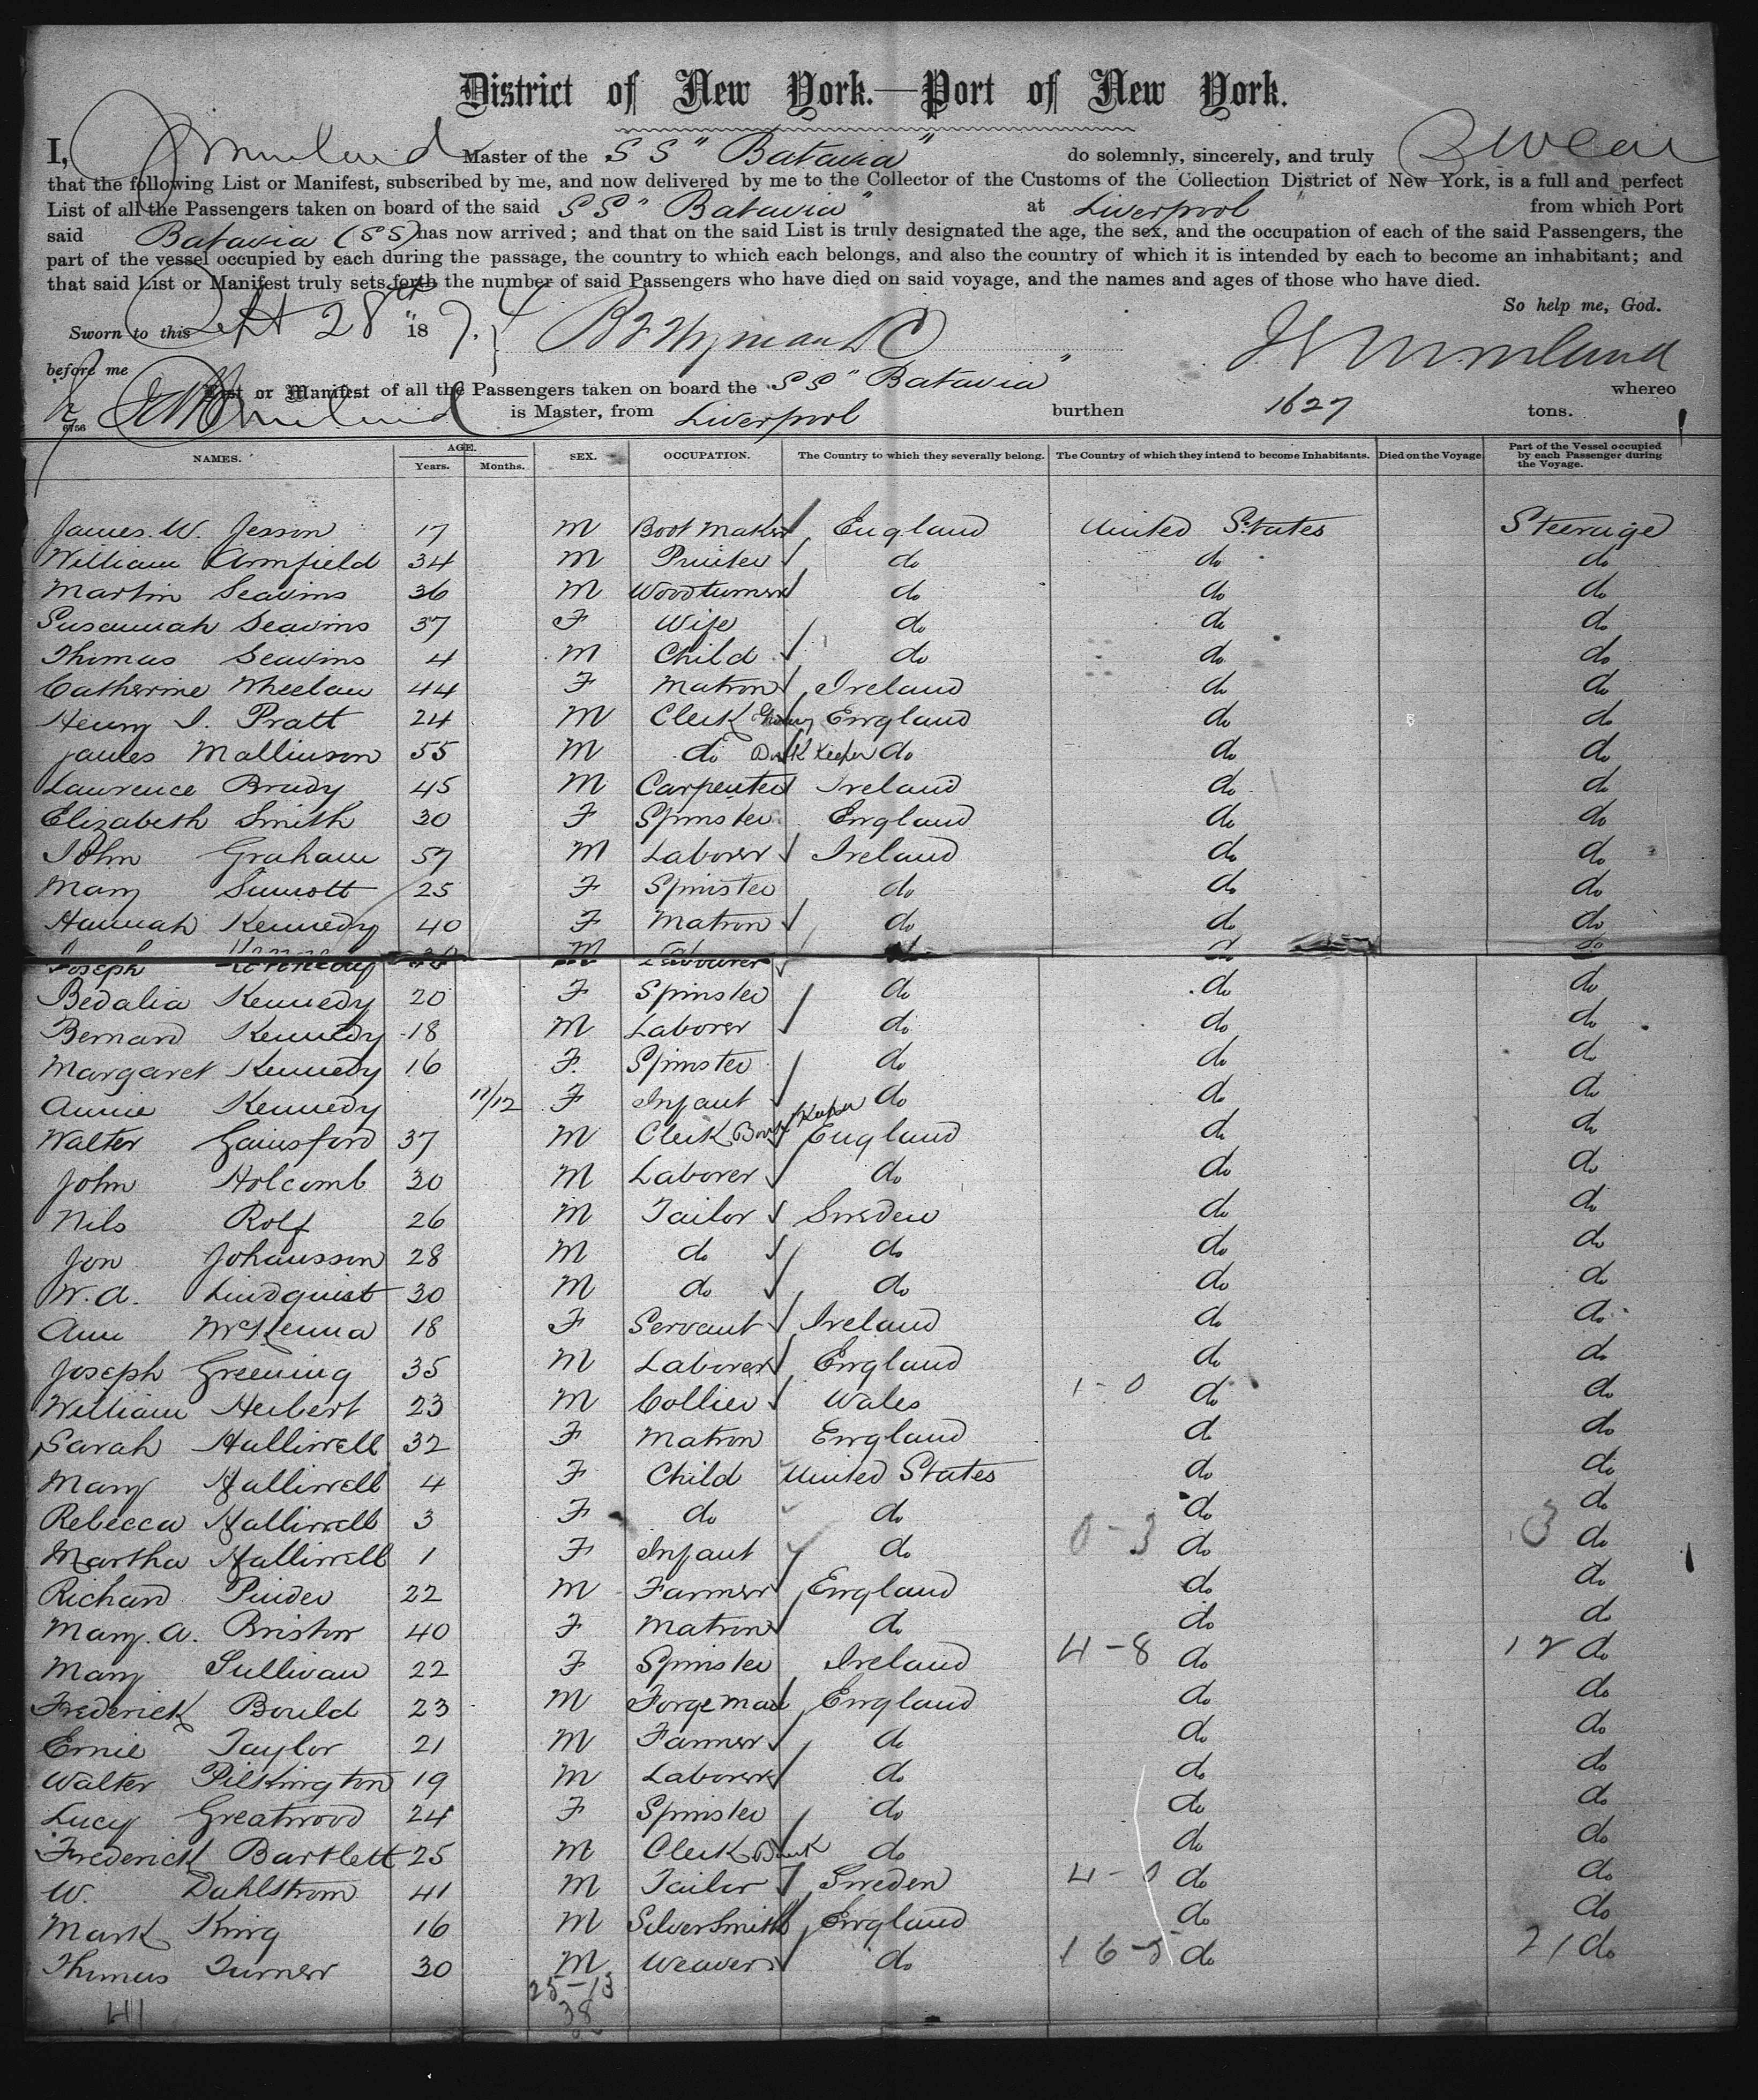 District of New York.—Port of New York.
I, Master of the S S "Batavia" do solemnly, sincerely, and truly Swear
that the following List or Manifest, subscribed by me, and now delivered by me to the Collector of the Customs of the Collection District of New York, is a full and perfect
List of all the Passengers taken on board of the said S S "Batavia" at Liverpool from which Port
said Batavia (S S) has now arrived; and that on the said List is truly designated the age, the sex, and the occupation of each of the said Passengers, the
part of the vessel occupied by each during the passage, the country to which each belongs, and also the country of which it is intended by each to become an inhabitant; and
that said List or Manifest truly sets forth the number of said Passengers who have died on said voyage, and the names and ages of those who have died.
So help me, God.
Sworn to this Sept 28th 187.4
before me
List or Manifest of all the Passengers taken on board the S S "Batavia" whereo
is Master, from Liverpool burthen 1627 tons.
NAMES. AGE. Years. Months. SEX. OCCUPATION. The Country to which they severally belong. The Country of which they intend to become Inhabitants. Died on the Voyage Part of the Vessel occupied by each Passenger during the Voyage.
James. W. Jesson 17 M Boot Maker England United States Steerage
William Armfield 34 M Printer do do do
Martin Seavins 36 M Woodturner do do do
Susannah Seavins 37 F Wife do do do
Thomas Seavins 4 M Child do do do
Catherine Wheelan 44 F Matron Ireland do do
Henry J. Pratt 24 M Clerk England do do
James Mallinson 55 M do Book Keeper do do do
Laurence Brady 45 M Carpenter Ireland do do
Elizabeth Smith 30 F Spinster England do do
John Graham 57 M Laborer Ireland do do
Mary Sinnott 25 F Spinster do do do
Hannah Kennedy 40 F Matron do do do
Joseph Kennedy M Labourer do do
Bedalia Kennedy 20 F Spinster do do do
Bernard Kennedy 18 M Laborer do do do
Margaret Kennedy 16 F Spinster do do do
Annie Kennedy 11/12 F Infant do do do
Walter Gainsford 37 M Clerk Book Keeper England do do
John Holcomb 30 M Laborer do do do
Nils Rolf 26 M Tailor Sweden do do
Jon Johansson 28 M do do do do
W. A. Lindquist 30 M do do do do
Ann McKenna 18 F Servant Ireland do do
Joseph Greening 35 M Laborer England do do
William Herbert 23 M Collier Wales 1-0 do do
Sarah Halliwell 32 F Matron England do do
Mary Halliwell 4 F Child United States do do
Rebecca Halliwell 3 F do do do do
Martha Halliwell 1 F Infant do 0-3 do 3 do
Richard Pinder 22 M Farmer England do do
Mary. A. Bristow 40 F Matron do do do
Mary Sullivan 22 F Spinster Ireland 4-8 do 12 do
Frederick Bould 23 M Forge Man England do do
Ernie Taylor 21 M Farmer do do do
Walter Pilkington 19 M Laborer do do do
Lucy Greatwood 24 F Spinster do do do
Frederick Bartlett 25 M Clerk do do do
W. Dahlstrom 41 M Tailor Sweden 4-0 do do
Mark King 16 M Silver Smith England do do
Thomas Turner 30 M Weaver do 16-5 do 21 do
41 25-13
38